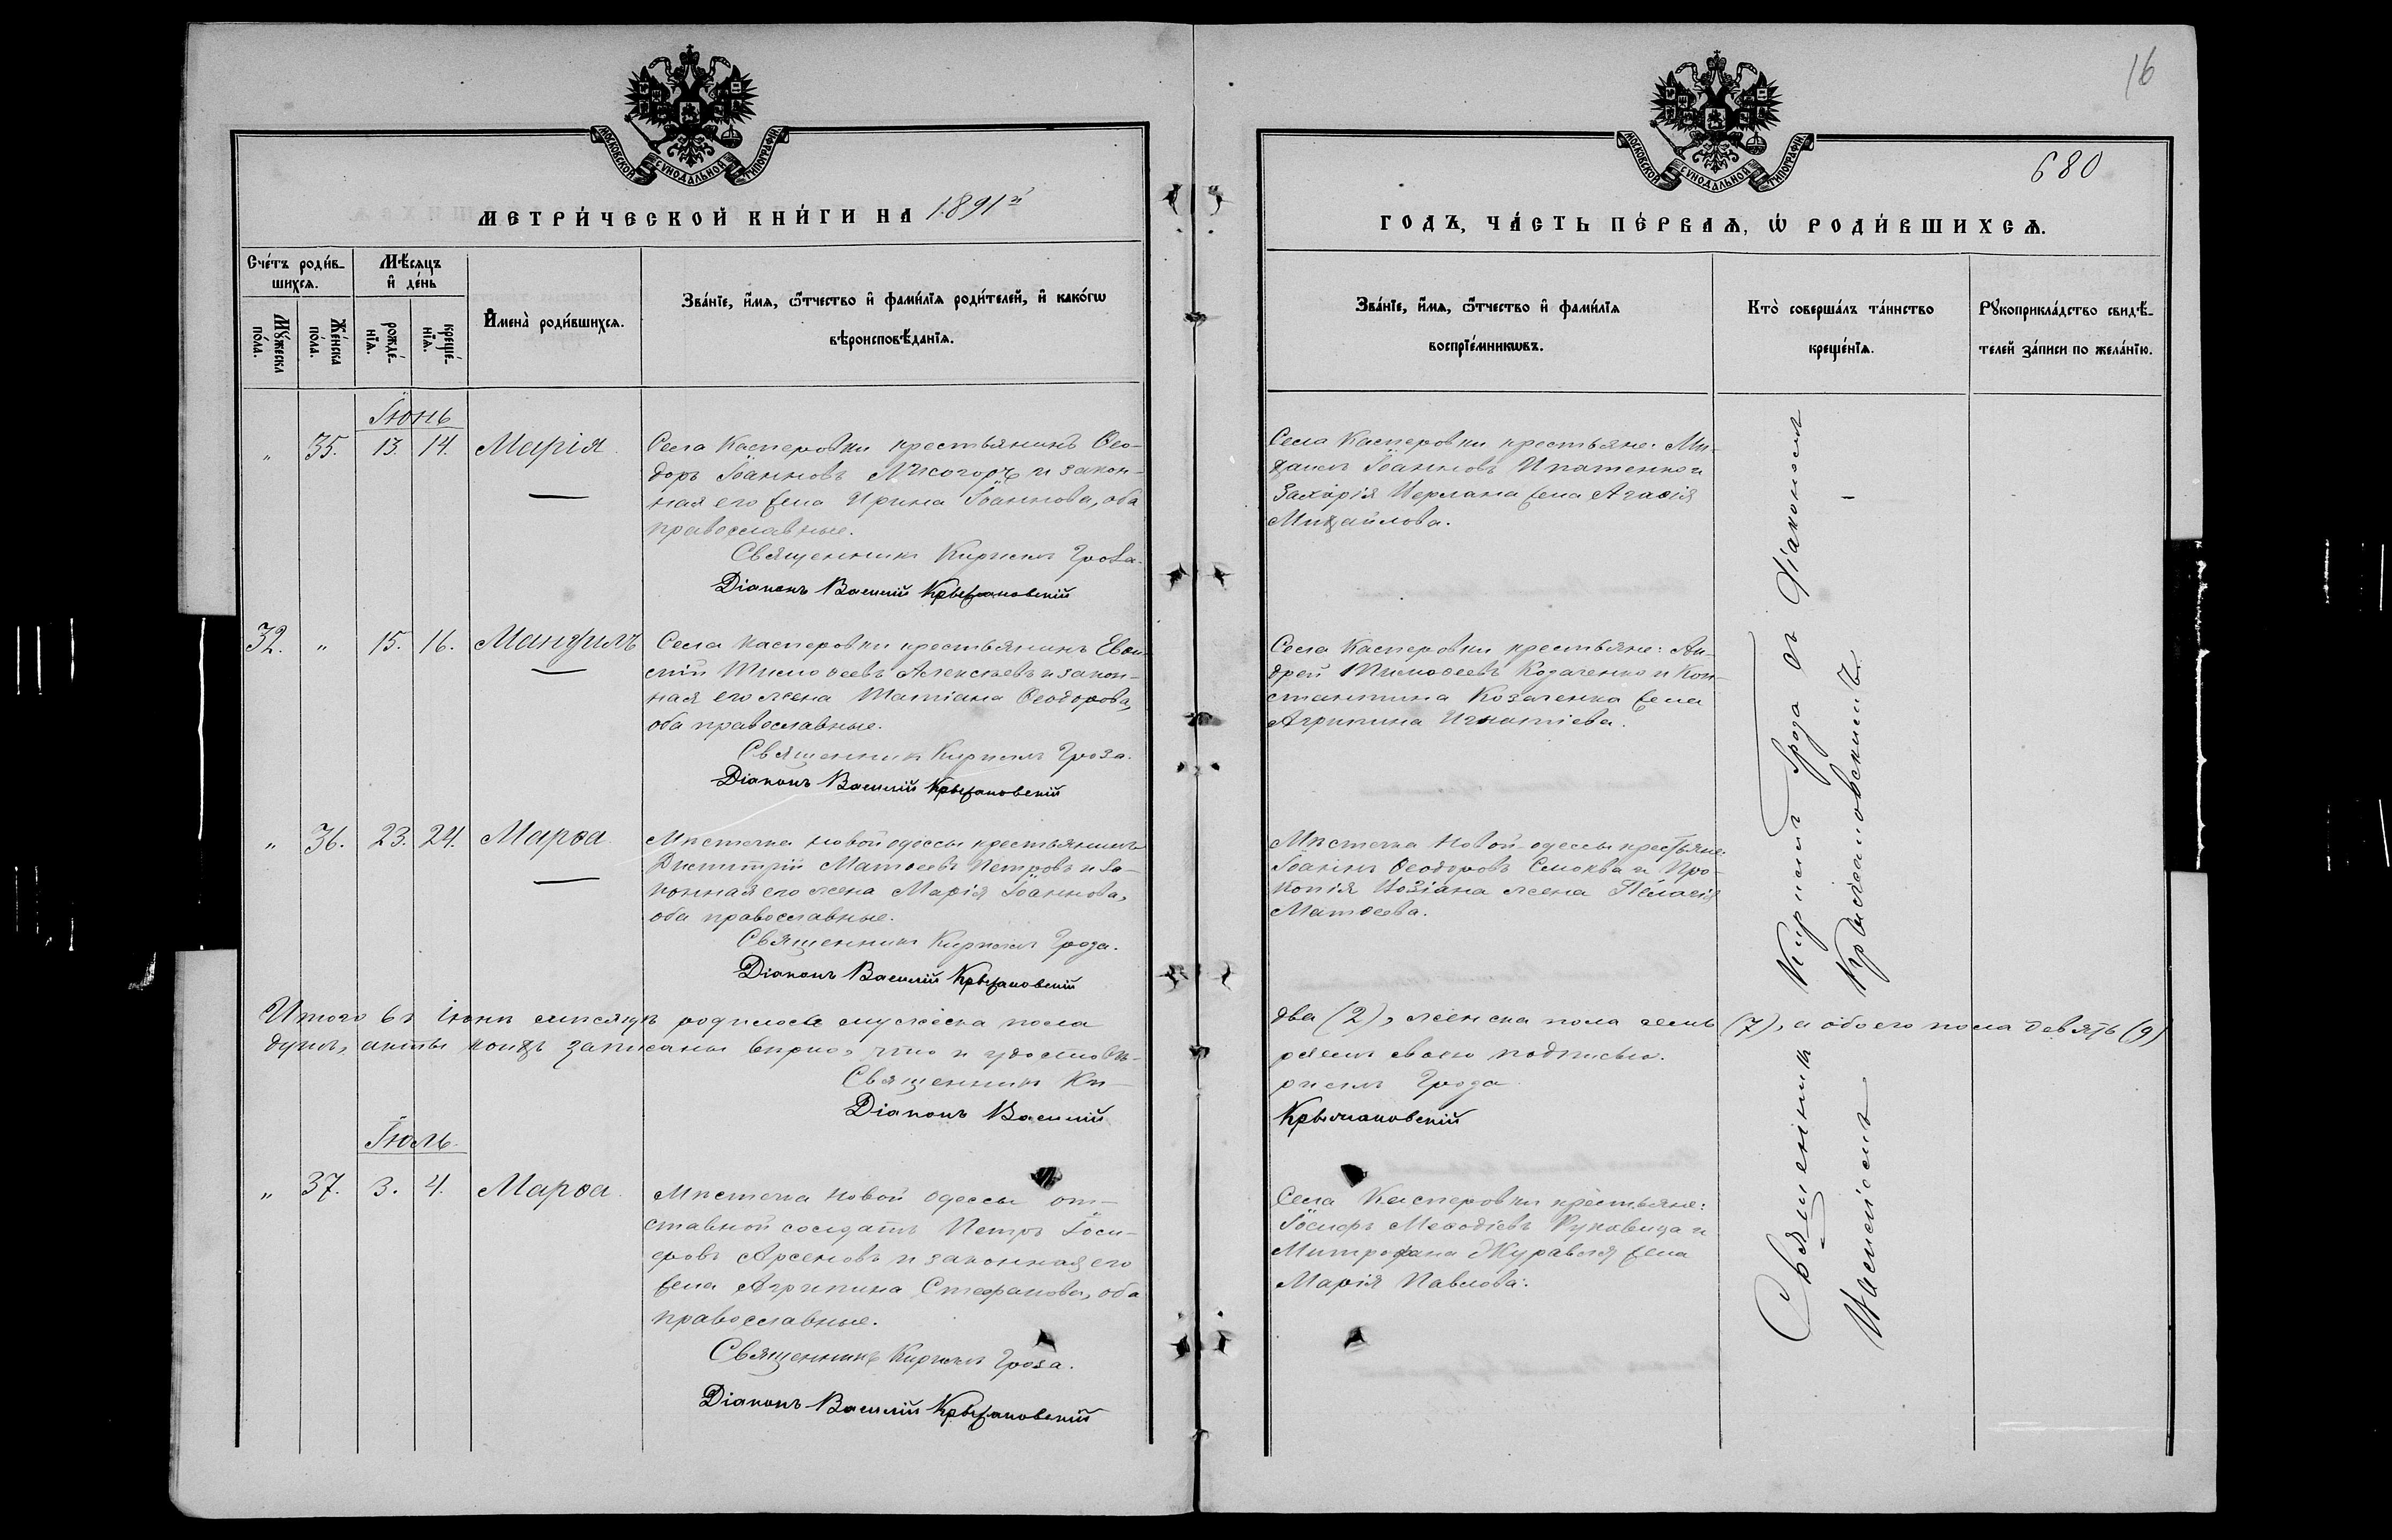 16
МОСКОВСКОЙ СѴНОДАЛЬНОЙ ТИПОГРАФІИ
МОСКОВСКОЙ СѴНОДАЛЬНОЙ ТИПОГРАФІИ
680
МЕТРИ́ЧЕСКОЙ КНИ́ГИ НА 1891й
ГОДЪ, ЧА́СТЬ ПЕ́РВАѦ, Ѡ РОДИ́ВШИХСѦ.
Сче́тъ роди́в-
шихсѧ.
Мѣ́сѧцъ
и де́нь
Мꙋ́жеска
по́ла.
Же́нска
по́ла.
рожде́-
нїѧ.
креще́-
нїѧ.
И҆мена̀ роди́вшихсѧ.
Зва́нїе, и҆́мѧ, ѻ҆́тчество и҆ фами́лїѧ роди́телей, и҆ како́гѡ
вѣроисповѣ́данїѧ.
Зва́нїе, и҆́мѧ, ѻ҆́тчество и҆ фами́лїѧ
воспрїе́мникѡвъ.
Кто̀ соверша́лъ та́инство
креще́нїѧ.
Рꙋкоприкла́дство свидѣ́-
телей за́писи по жела́нїю.
Іюнь
„ 35. 13. 14. Марія.
Села Касперовки крестьянинъ Ѳео-
доръ Іоанновъ Лисогоръ и закон-
ная его жена Ирина Іоаннова, оба
православные.
Священникъ Кириллъ Гроза.
Діаконъ Василій Крыжановскій
Села Касперовки крестьяне: Ми-
хаилъ Іоанновъ Ипатенко и
Захарія жена Агаѳія
Михайлова.
32. „ 15. 16. Мануилъ
Села Касперовки крестьянинъ Евѳи-
мій Тимоѳеевъ Алексѣевъ и закон-
ная его жена Татіана Ѳеодорова,
оба православные.
Священникъ Кириллъ Гроза.
Діаконъ Василій Крыжановскій
Села Касперовки крестьяне: Ан-
дрей Тимоѳеевъ Козаченко и Кон-
стантина Козаченка жена
Агрипина Игнатіева.
„ 36. 23. 24. Марѳа.
Мѣстечка Новой одессы крестьянинъ
Димитрій Матѳеевъ Петровъ и за-
конная его жена Марія Іоаннова,
оба православные.
Священникъ Кириллъ Гроза.
Діаконъ Василій Крыжановскій
Мѣстечка Новой-одессы крестьяне:
Іоаннъ Ѳеодоровъ Смоква и Про-
копія жена Пелагія
Матѳеева.
Итого въ Іюнѣ мѣсяцѣ родилось мужеска пола два (2), женска пола семь (7), а обоего пола девять (9)
душъ, акты коихъ записаны вѣрно, что и удостовѣ- ряемъ своею подписью.
Священникъ Ки- риллъ Гроза
Діаконъ Василій Крыжановскій
Іюль.
„ 37. 3. 4. Марѳа.
Мѣстечка Новой Одессы от-
ставной солдатъ Петръ Іоси-
фовъ Арсеновъ и законная его
жена Агрипина Стефанова, оба
православные.
Священникъ Кириллъ Гроза.
Діаконъ Василій Крыжановскій
Села Касперовки крестьяне:
Іосифъ Меѳодіевъ Руковица и
Митрофана Журавля жена
Марія Павлова.
Священникъ Кириллъ Гроза съ Діакономъ
Василіемъ Крыжановскимъ